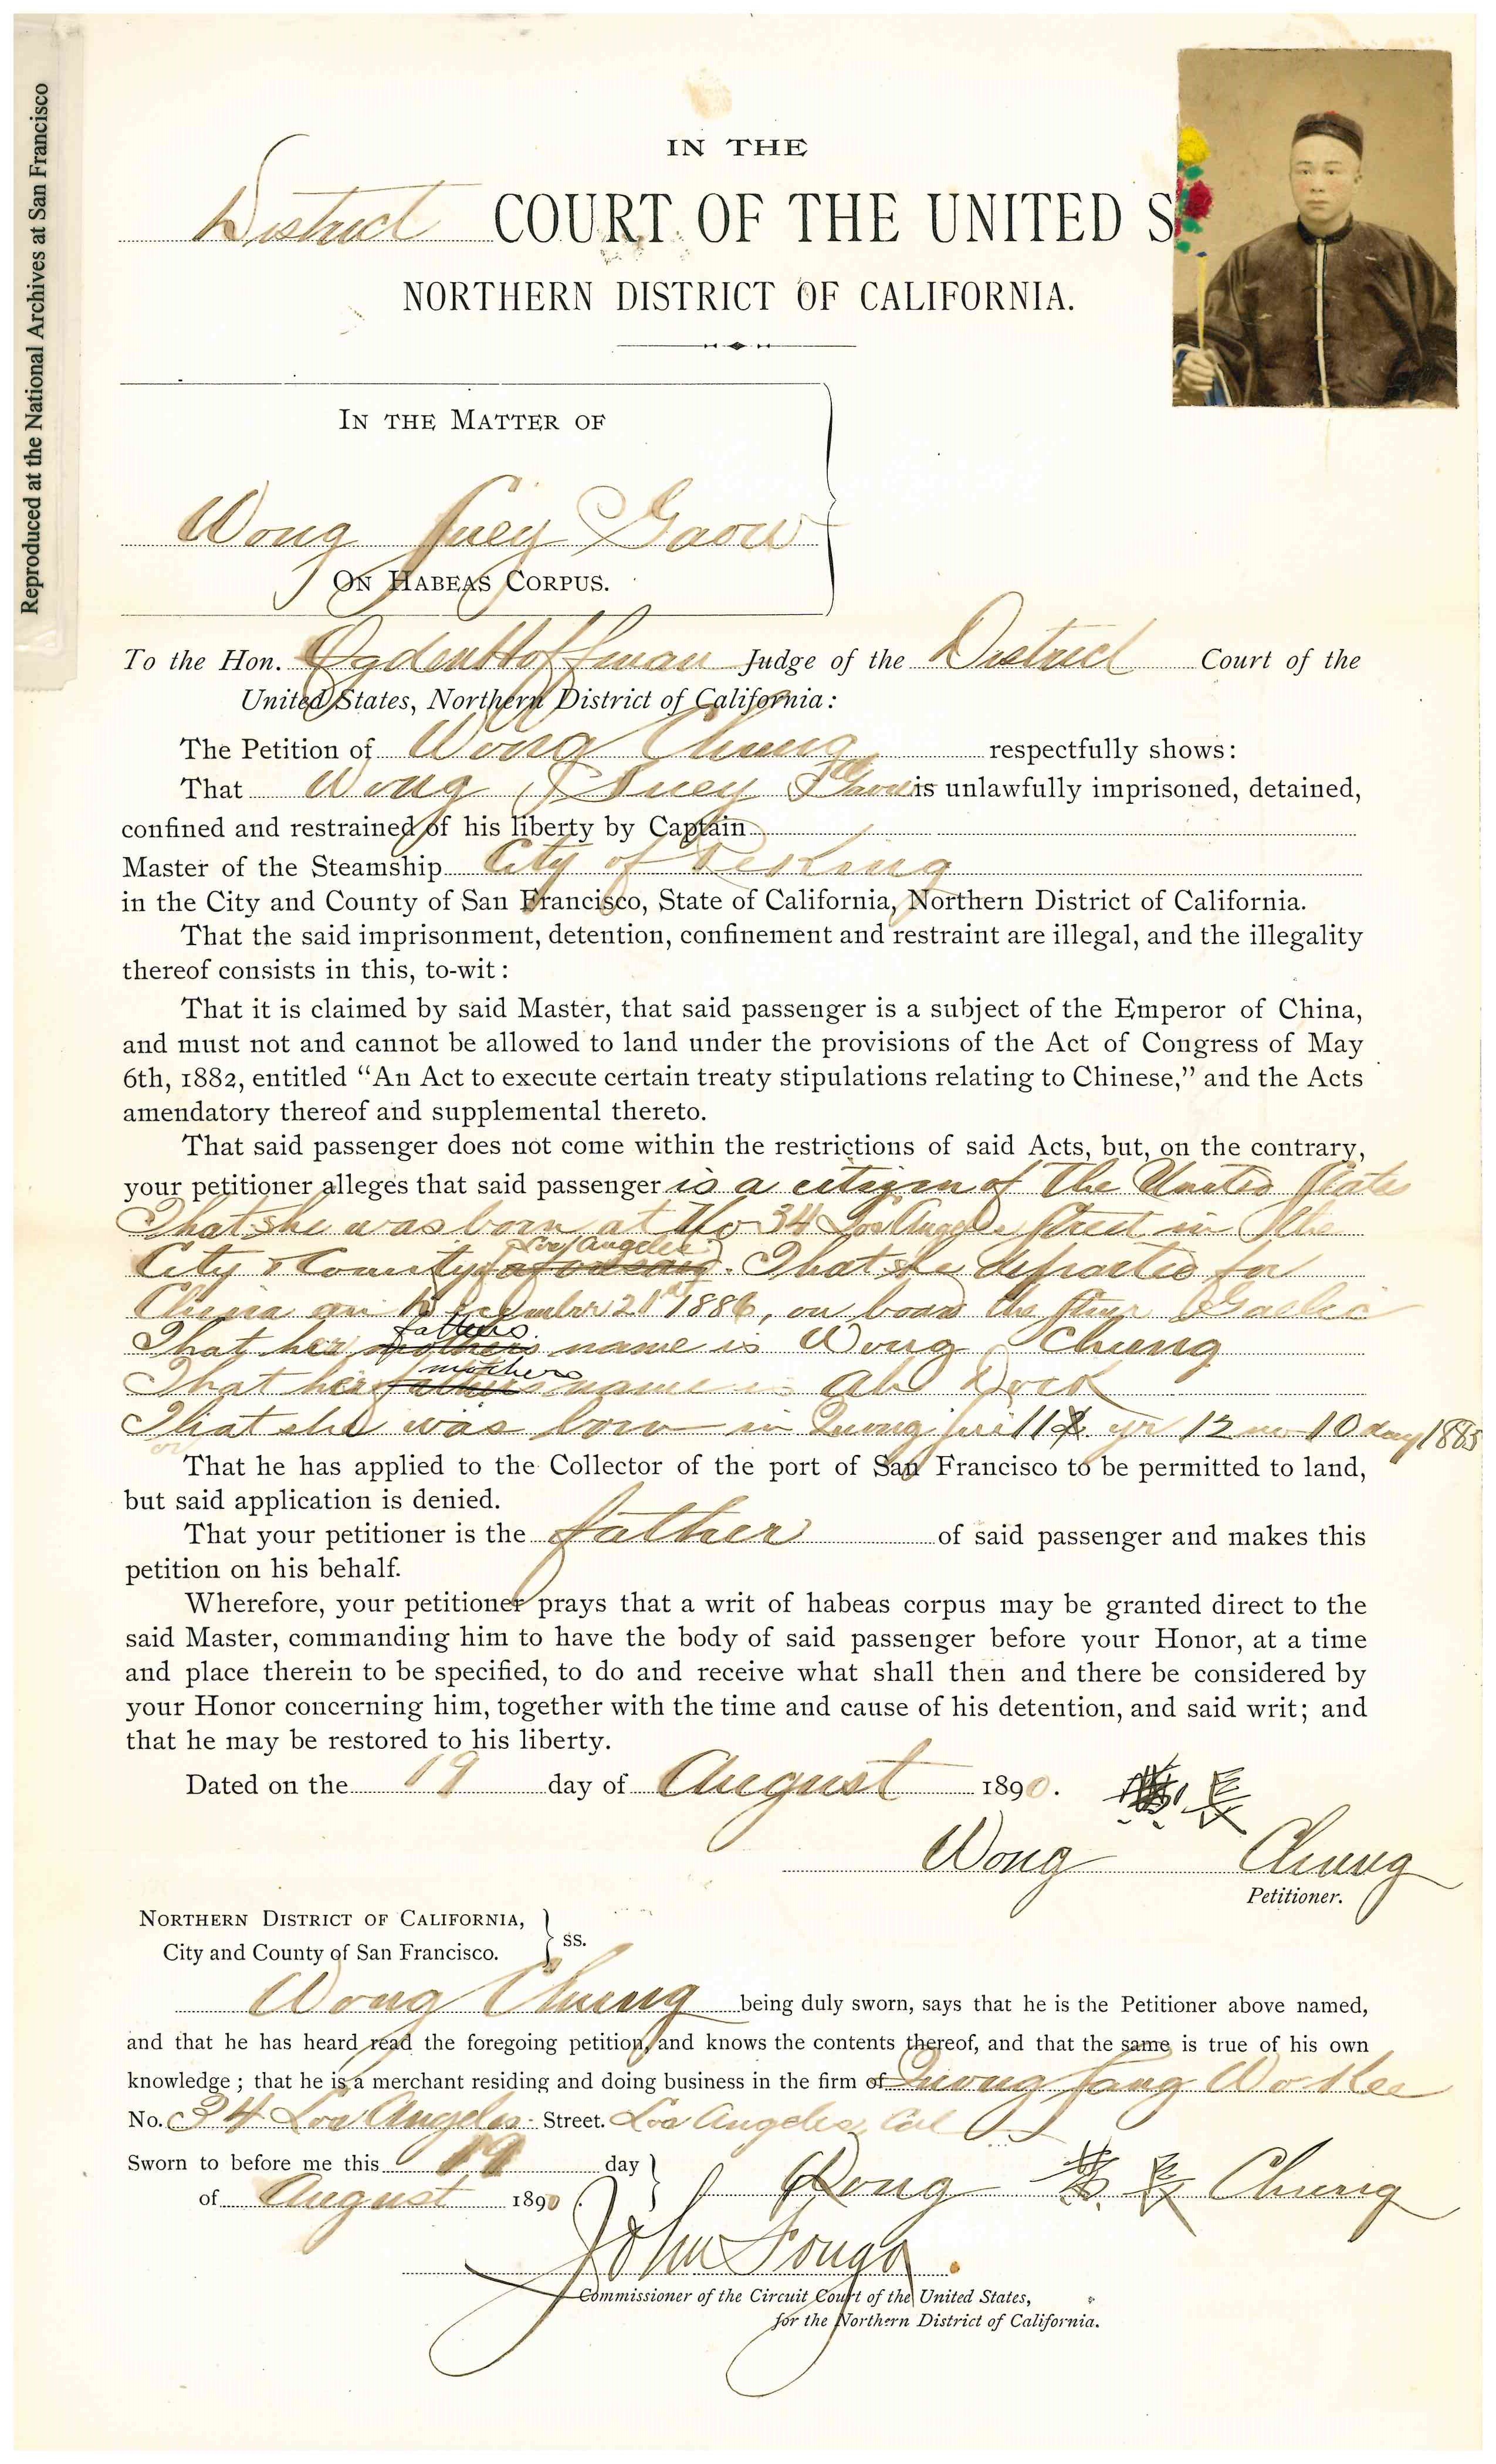 Reproduced at the National Archives at San Francisco
IN THE
District COURT OF THE UNITED S
NORTHERN DISTRICT OF CALIFORNIA.
IN THE MATTER OF
Wong Suey Gaow
ON HABEAS CORPUS.
To the Hon. Ogden Hoffman Judge of the District Court of the
United States, Northern District of California:
The Petition of Wong Chung respectfully shows:
That Wong Suey is unlawfully imprisoned, detained,
confined and restrained of his liberty by Captain
Master of the Steamship City of Peking
in the City and County of San Francisco, State of California, Northern District of California.
That the said imprisonment, detention, confinement and restraint are illegal, and the illegality
thereof consists in this, to-wit:
That it is claimed by said Master, that said passenger is a subject of the Emperor of China,
and must not and cannot be allowed to land under the provisions of the Act of Congress of May
6th, 1882, entitled “An Act to execute certain treaty stipulations relating to Chinese,” and the Acts
amendatory thereof and supplemental thereto.
That said passenger does not come within the restrictions of said Acts, but, on the contrary,
your petitioner alleges that said passenger is a citizen of the United States
That she was born at No 34 Los Angeles Street in the
Los Angeles
City & County aforesaid. That she departed for
China on December 21st 1886, on board the Stmr Gaelic
fathers
That her mothers name is Wong Chung
mothers
That her fathers name is Ah Dock
That she was born in 11 yr 12 mo 10 day 1885
or
That he has applied to the Collector of the port of San Francisco to be permitted to land,
but said application is denied.
That your petitioner is the father of said passenger and makes this
petition on his behalf.
Wherefore, your petitioner prays that a writ of habeas corpus may be granted direct to the
said Master, commanding him to have the body of said passenger before your Honor, at a time
and place therein to be specified, to do and receive what shall then and there be considered by
your Honor concerning him, together with the time and cause of his detention, and said writ; and
that he may be restored to his liberty.
Dated on the 19 day of August 1890. 長
Wong Chung
Petitioner.
NORTHERN DISTRICT OF CALIFORNIA,
City and County of San Francisco. ss.
Wong Chung being duly sworn, says that he is the Petitioner above named,
and that he has heard read the foregoing petition, and knows the contents thereof, and that the same is true of his own
knowledge; that he is a merchant residing and doing business in the firm of
No. 34 Los Angeles Street. Los Angeles, Cal
Sworn to before me this 19 day
of August 1890. Wong 黄長 Chung
John
Commissioner of the Circuit Court of the United States,
for the Northern District of California.